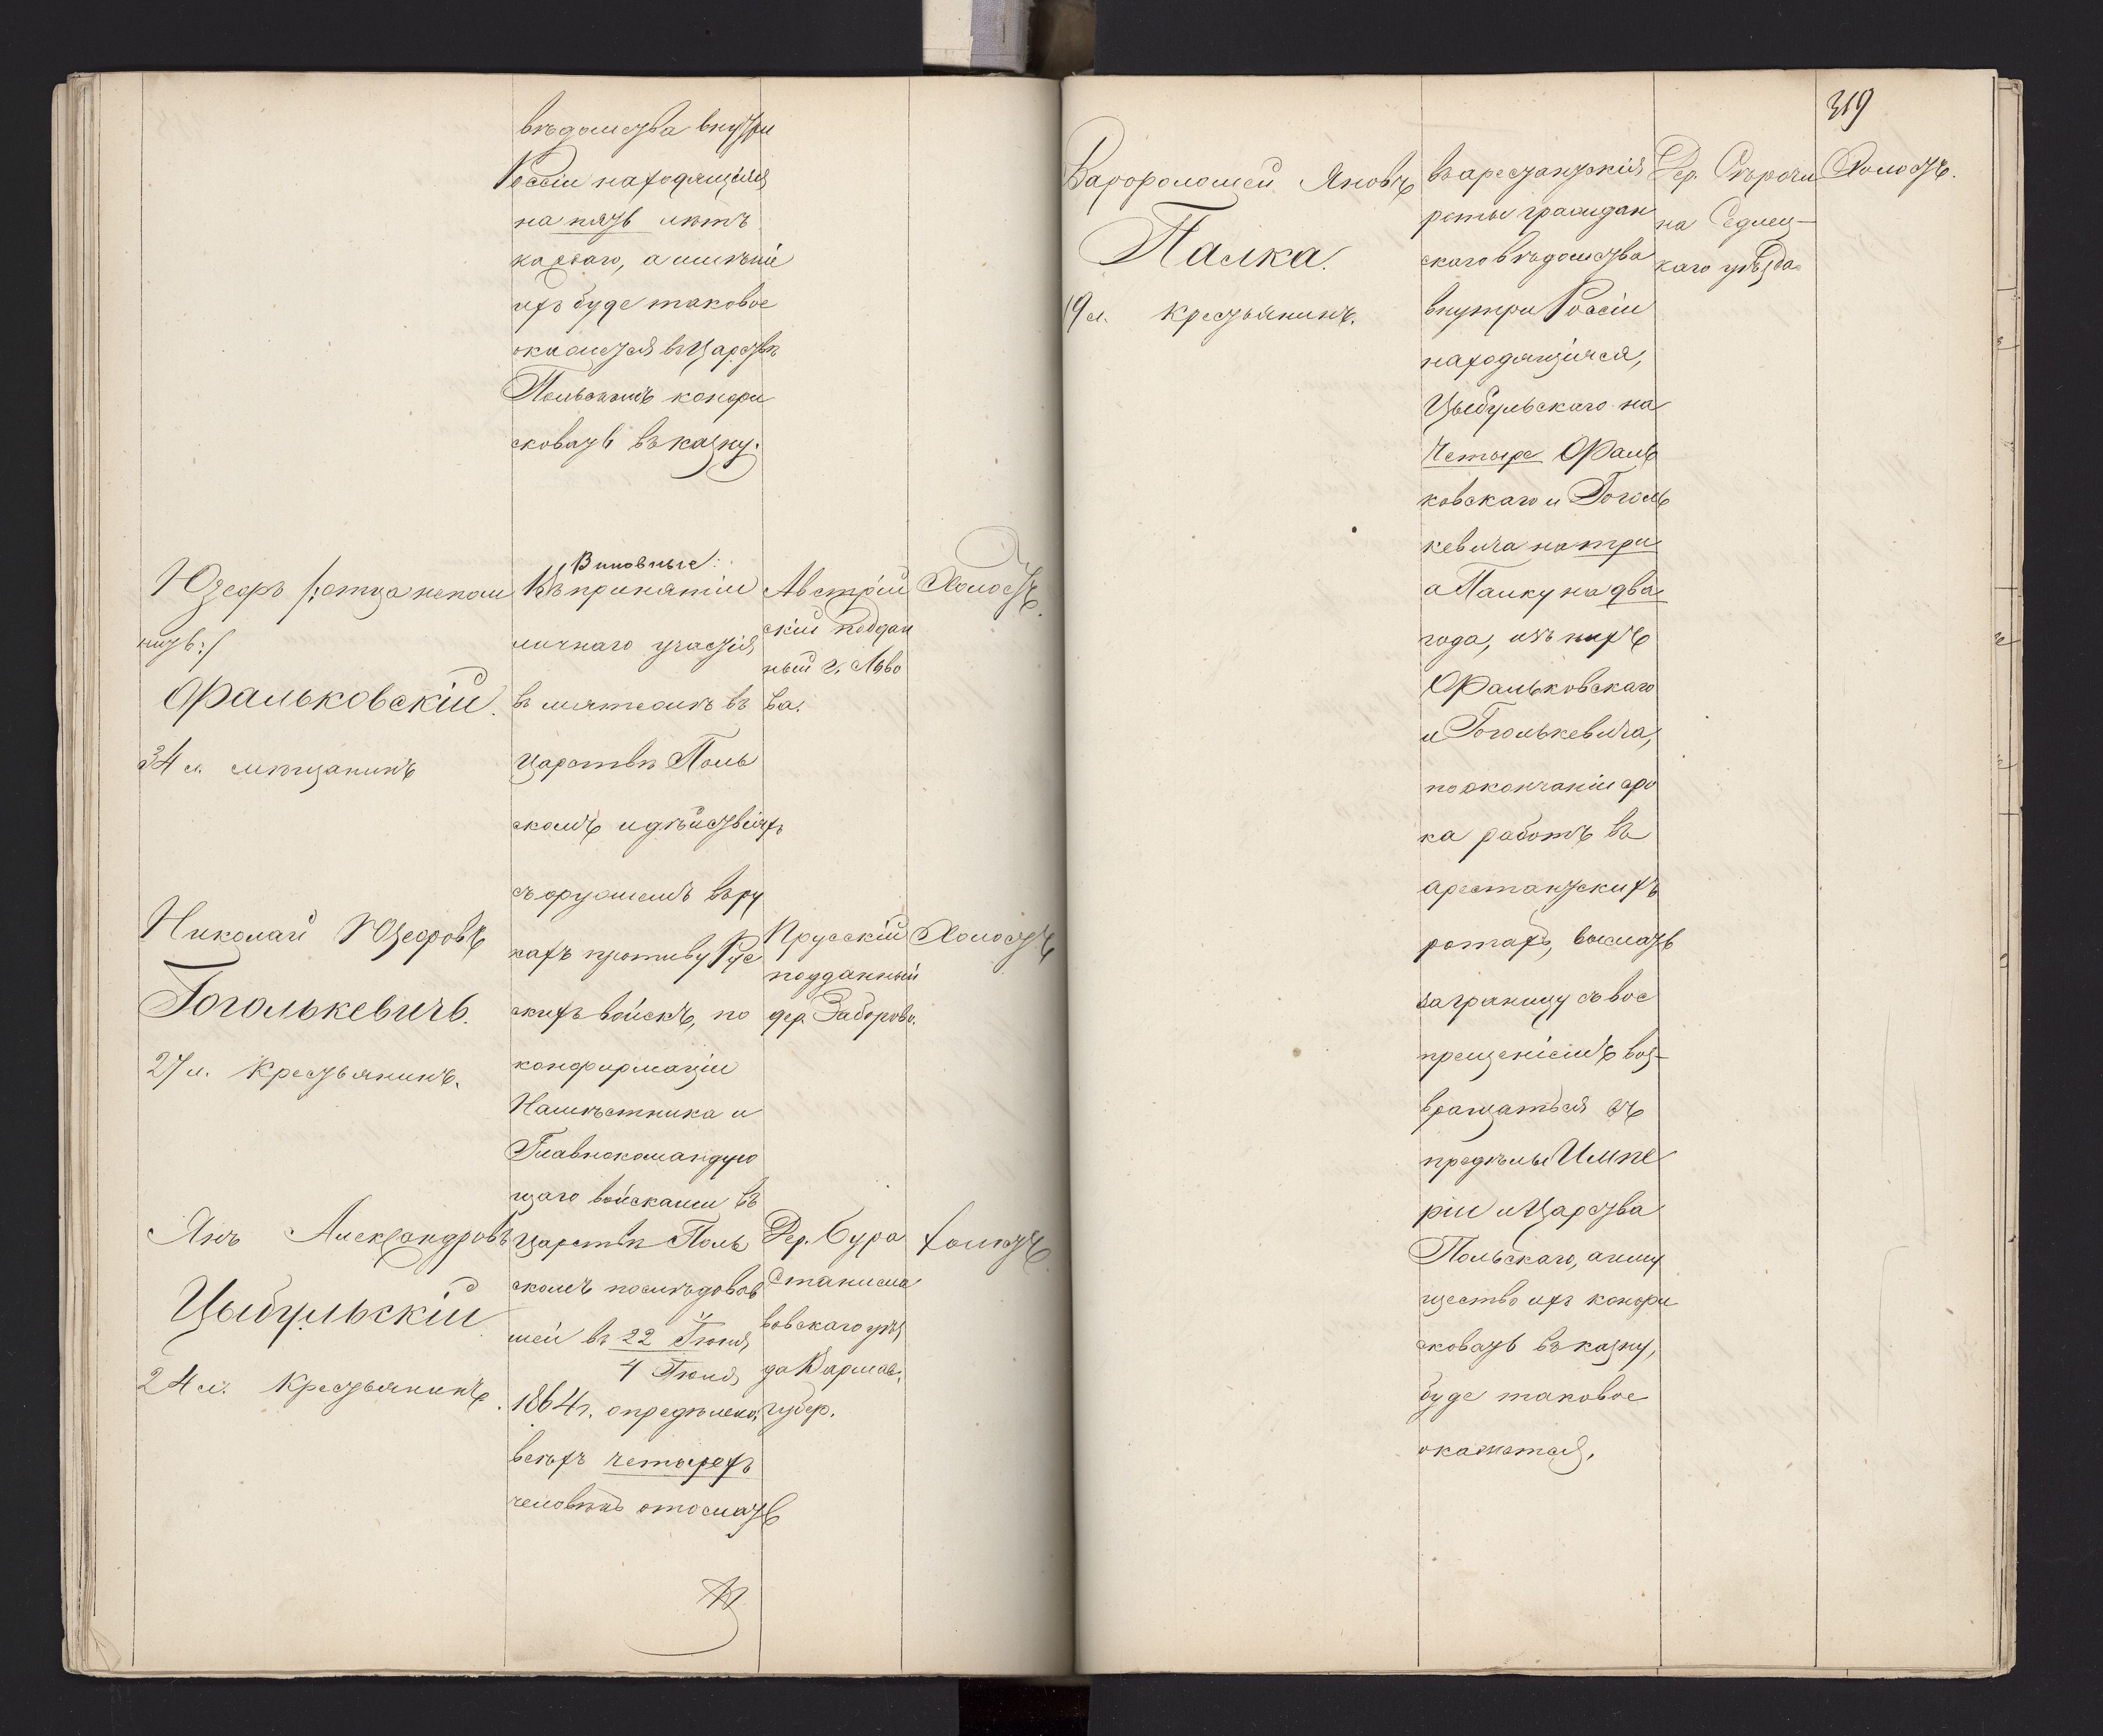 вѣдомства внутри
Россіи находящіяся
на пять лѣтъ
каждаго, а имѣніе
ихъ буде таковое
окажется въ Царствѣ
Польскомъ конфи
сковать въ казну.
Юзефъ /:отца непом
нитъ:/
Фальковскій.
34 л. мѣщанинъ
Виновные:
Въ принятіи
личнаго участія
въ мятежѣ въ
Царствѣ Поль
скомъ и дѣйствіяхъ
съ оружіемъ въ ру
кахъ противу Рус
скихъ войскъ, по
конфирмаціи
Намѣстника и
Главнокомандую
щаго войсками въ
Царствѣ Поль
скомъ послѣдовав
шей въ 22 Іюня
4 Іюля
1864 г. опредѣлено:
всѣхъ четырехъ
человѣкъ отослать
Австрій
скій поддан
ный г. Льво
ва.
Холостъ.
Николай Юзефовъ
Гоголькевичъ.
27 л. Крестьянинъ.
Прусскій
подданный
дер. Заборово.
Холостъ
Янъ Александровъ
Цыбульскій
24 л. Крестьянинъ.
Дер. Бура
Станисла
вовскаго уѣз
да Варшав.
губер.
холостъ
319
Варфоломей Яновъ
Палка.
19 л. Крестьянинъ.
въ арестантскія
роты граждан
скаго вѣдомства
внутри Россіи
находящіяся,
Цыбульскаго на
четыре Фаль
ковскаго и Гоголь
кевича на три
а Палку на два
года, изъ нихъ
Фальковскаго
и Гоголькевича,
по окончаніи сро
ка работъ въ
арестантскихъ
ротахъ, выслать
заграницу съ вос
прещеніемъ воз-
вращаться въ
предѣлы Импе
ріи и Царства
Польскаго, а иму
щество ихъ конфи
сковать въ казну,
буде таковое
окажется.
Дер.
на Седлец-
каго уѣзда
Холостъ.